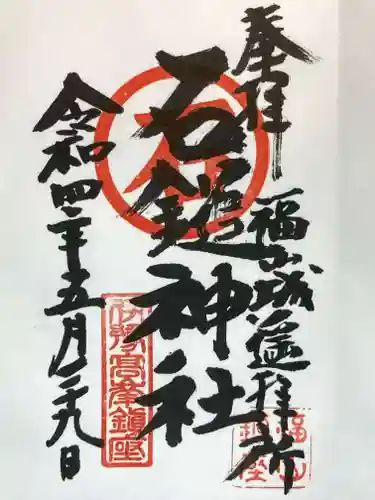 奉拝
福山城遥拝所
石鎚神社
令和四年五月二十九日
伊勢高峯鎮座